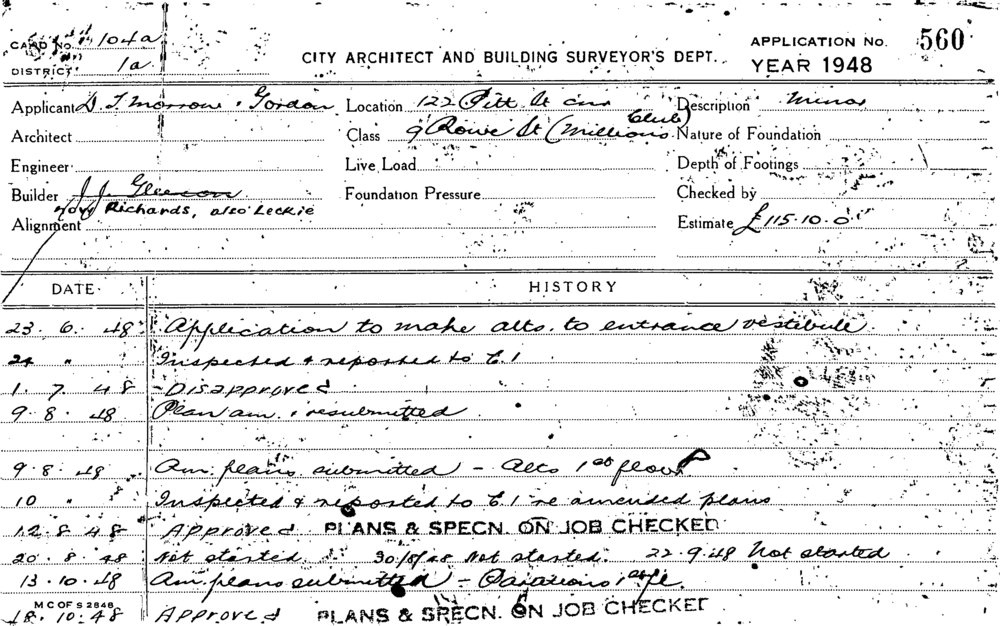 CARD No. 104a
DISTRICT 1a
CITY ARCHITECT AND BUILDING SURVEYOR'S DEPT.
APPLICATION No. 560
YEAR 1948
Applicant D. T. Morrow & Gordon Location 122 Pitt St cnr Description Minor
Architect Class 9 Rowe St (Millions Club) Nature of Foundation
Engineer Live Load Depth of Footings
Builder J. J. Gleeson Foundation Pressure Checked by
now Richards, also Leckie
Alignment Estimate £115.10.0
DATE HISTORY
23.6.48 Application to make alts. to entrance vestibule
24 " Inspected & reported to C.1
1.7.48 - Disapproved
9.8.48 Plan am. & resubmitted
9.8.48 Am. plans submitted - Alts 1st floor
10 " Inspected & reported to C.1 re amended plans
12.8.48 Approved PLANS & SPECN. ON JOB CHECKED
20.8.48 Not started. 30/8/48 Not started. 22.9.48 Not started
13.10.48 Am. plans submitted - 1st fl.
M C OF S 2848
18.10.48 Approved PLANS & SPECN. ON JOB CHECKED